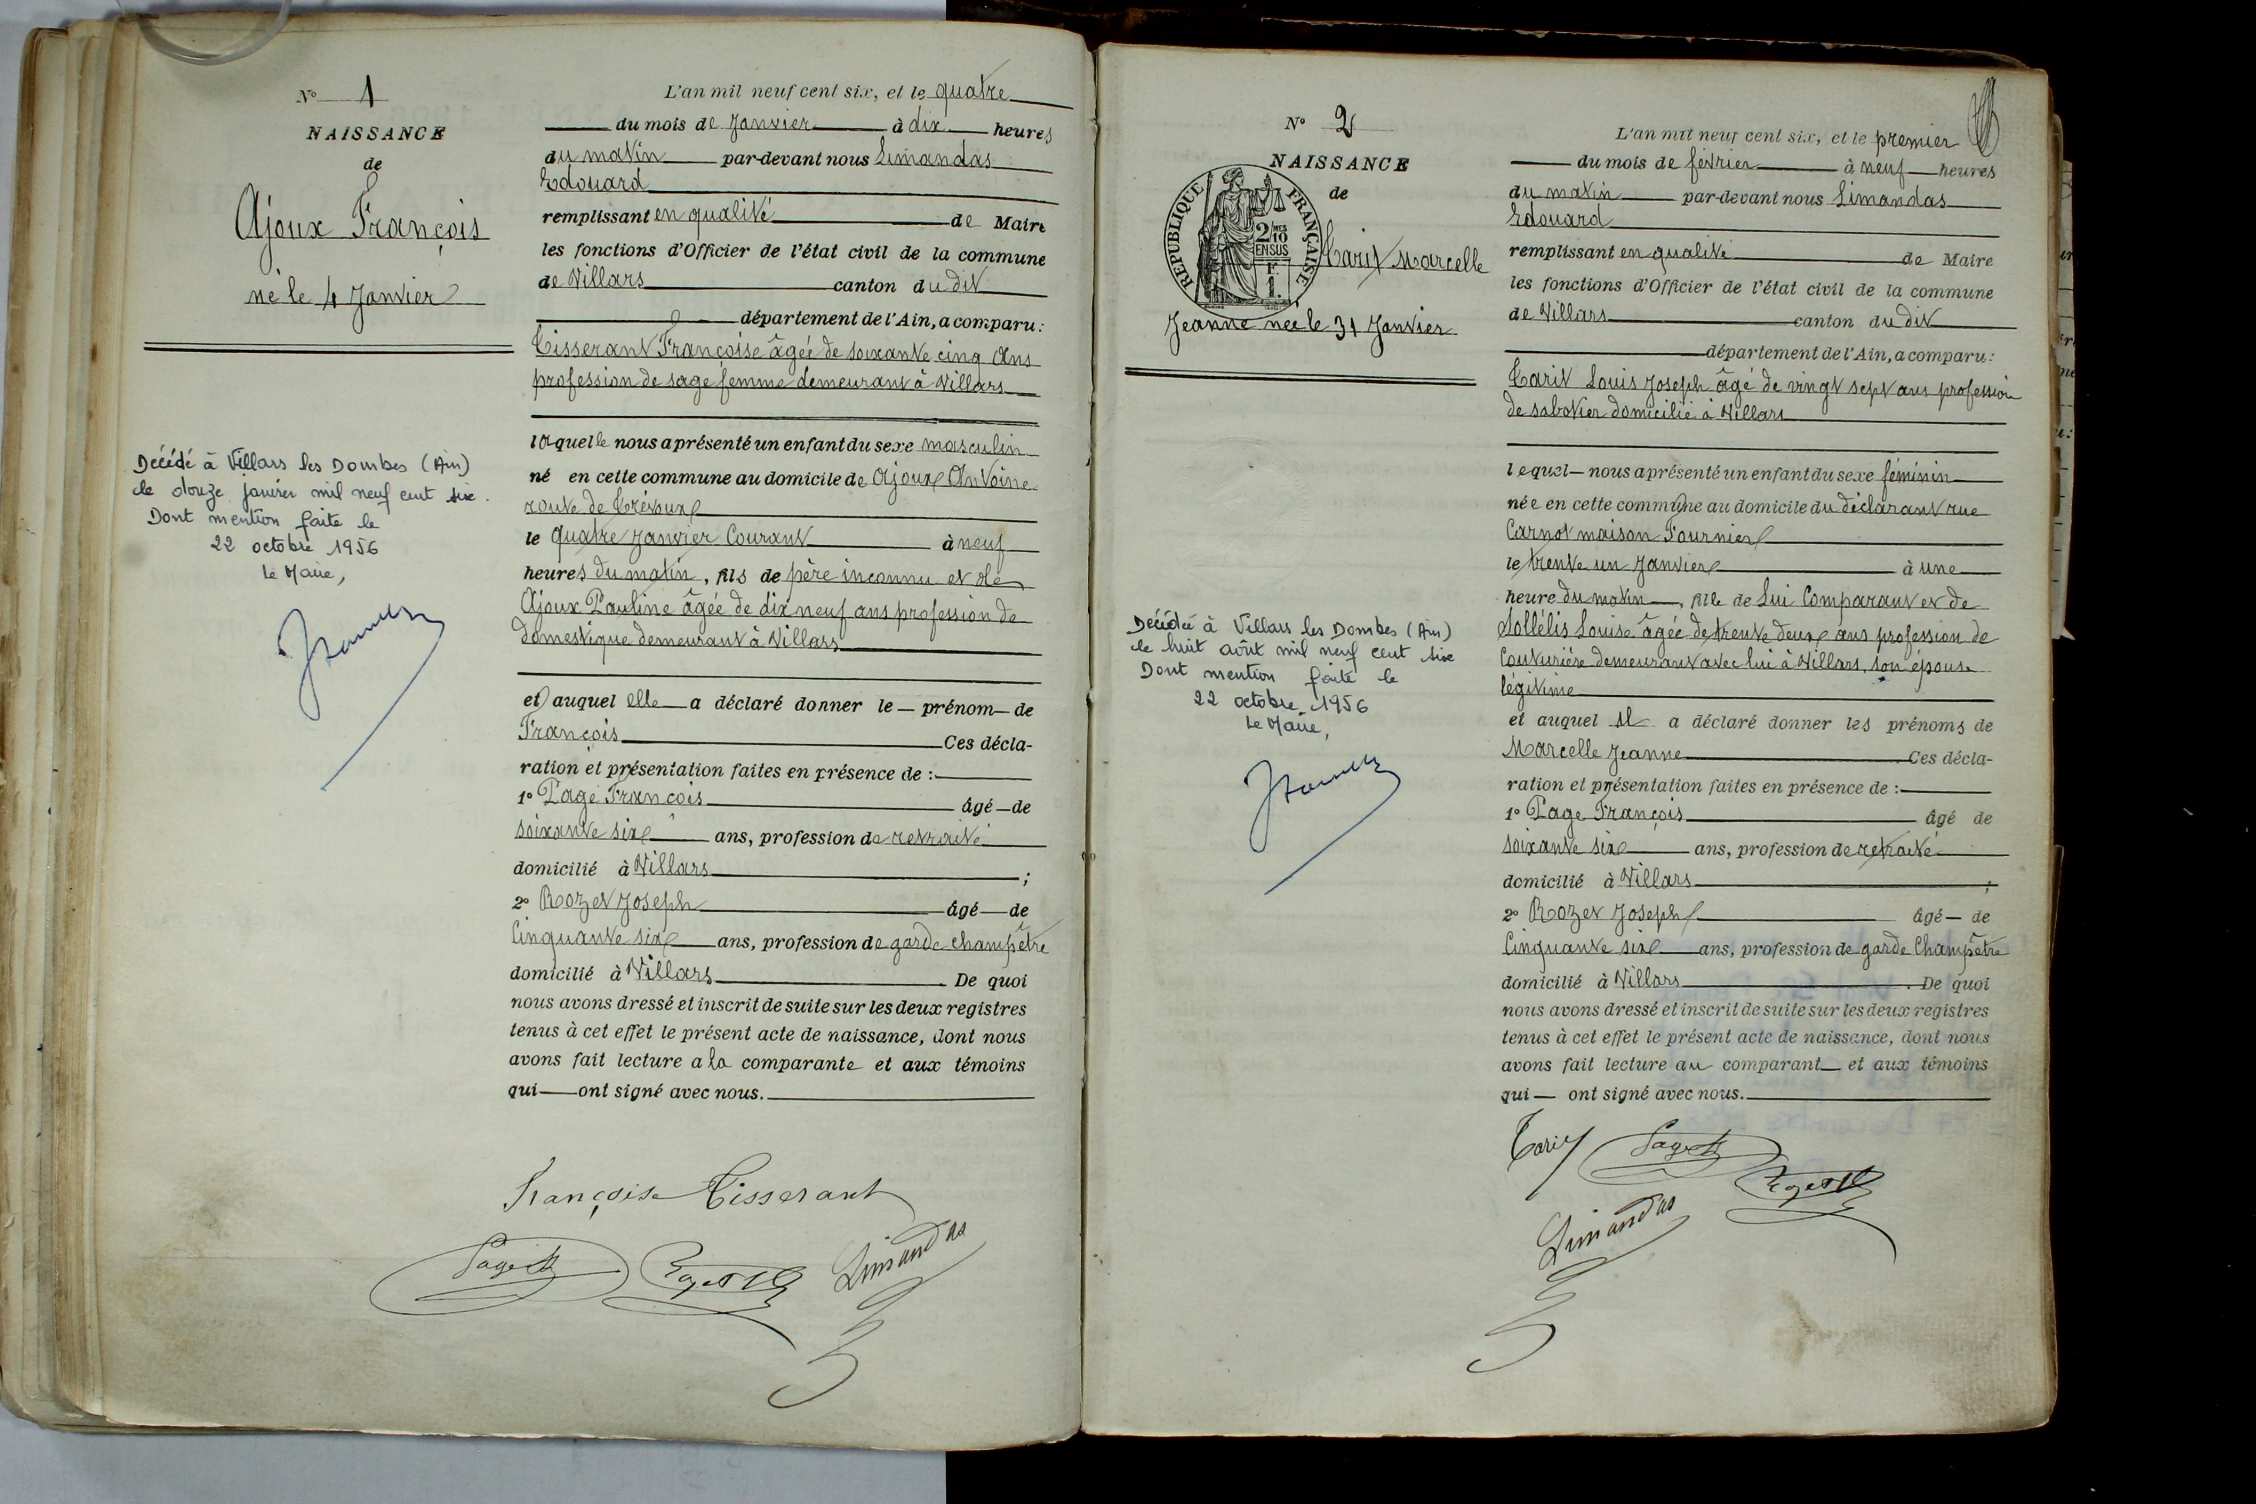 N° 1
NAISSANCE
de
Ajoux François
né le 4 Janvier
Décédé à Villars les Dombes (Ain)
le douze janvier mil neuf cent six.
Dont mention faite le
22 octobre 1956
Le Maire,
L'an mil neuf cent six, et le quatre
du mois de Janvier à dix heures
du matin par-devant nous Limandas
Edouard
remplissant en qualité de Maire
les fonctions d'Officier de l'état civil de la commune
de Villars canton du dit
département de l'Ain, a comparu:
Tisserant Françoise âgée de soixante cinq ans
profession de sage femme demeurant à Villars
laquelle nous a présenté un enfant du sexe masculin
né en cette commune au domicile de Ajoux Antoine
route de Trévoux
le quatre Janvier Courant à neuf
heures du matin, fils de père inconnu et de
Ajoux Pauline âgée de dix neuf ans profession de
domestique demeurant à Villars
et auquel elle a déclaré donner le prénom de
François Ces décla-
ration et présentation faites en présence de :
1° Page François âgé de
soixante six ans, profession de retraité
domicilié à Villars ;
2° Rozet Joseph âgé de
Cinquante six ans, profession de garde champêtre
domicilié à Villars De quoi
nous avons dressé et inscrit de suite sur les deux registres
tenus à cet effet le présent acte de naissance, dont nous
avons fait lecture a la comparante et aux témoins
qui ont signé avec nous.
Françoise Tisserant
Page
Rozet
Limandas
N° 2
NAISSANCE
de
RÉPUBLIQUE FRANÇAISE
2/10 MES
EN SUS
F
1.
Tarit Marcelle
Jeanne née le 31 Janvier
Décédée à Villars les Dombes (Ain)
le huit août mil neuf cent six
Dont mention faite le
22 octobre 1956
Le Maire,
L'an mil neuf cent six, et le premier
du mois de février à neuf heures
du matin par-devant nous Limandas
Edouard
remplissant en qualité de Maire
les fonctions d'Officier de l'état civil de la commune
de Villars canton du dit
département de l'Ain, a comparu:
Tarit Louis Joseph âgé de vingt sept ans profession
de sabotier domicilié à Villars
lequel nous a présenté un enfant du sexe féminin
née en cette commune au domicile du déclarant rue
Carnot maison Fournier
le trente un Janvier à une
heure du matin, fille de Lui Comparant et de
Sollélis Louise âgée de trente deux ans profession de
Couturière demeurant avec lui à Villars, son épouse
légitime
et auquel Il a déclaré donner les prénoms de
Marcelle Jeanne Ces décla-
ration et présentation faites en présence de :
1° Page François âgé de
soixante six ans, profession de retraité
domicilié à Villars ;
2° Rozet Joseph âgé de
Cinquante six ans, profession de garde Champêtre
domicilié à Villars . De quoi
nous avons dressé et inscrit de suite sur les deux registres
tenus à cet effet le présent acte de naissance, dont nous
avons fait lecture au comparant et aux témoins
qui ont signé avec nous.
Tarit
Page
Rozet
Limandas